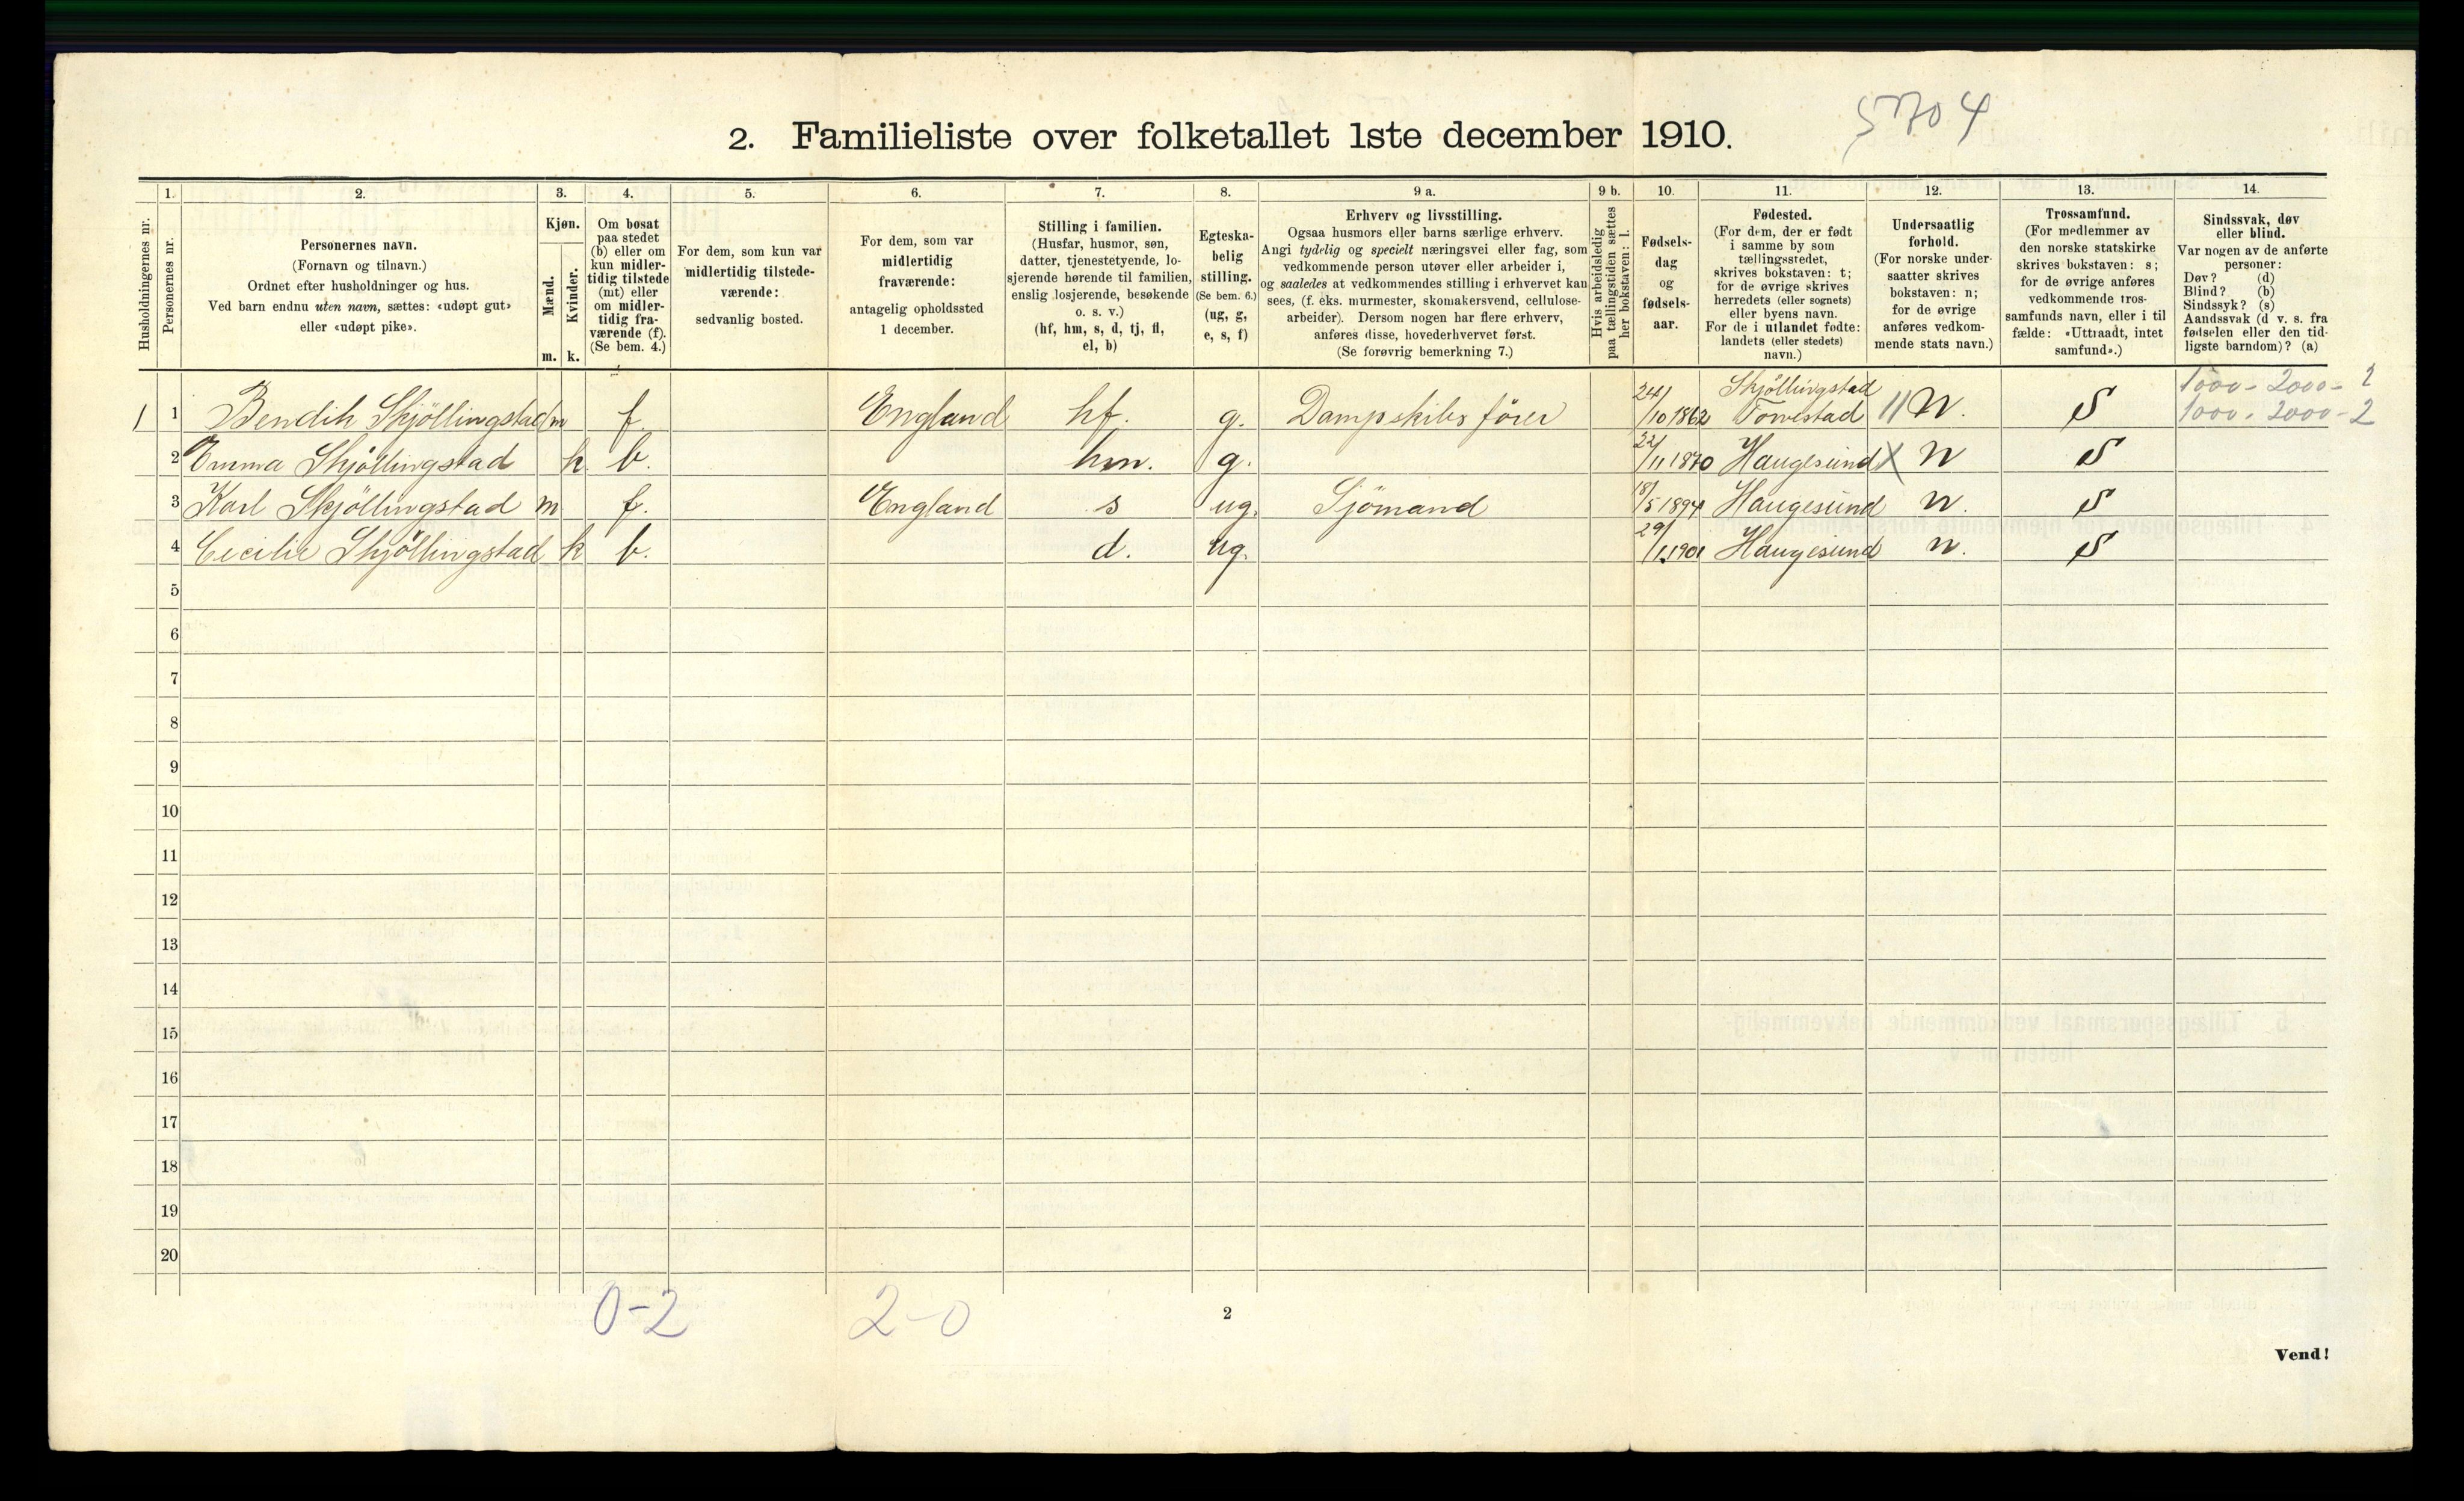 5704
2. Familieliste over folketallet 1ste december 1910.
1. 2. 3. 4. 5. 6. 7. 8. 9 a. 9 b. 10. 11. 12. 13. 14.
Husholdningernes nr.
Personernes nr.
Personernes navn.
(Fornavn og tilnavn.)
Ordnet efter husholdninger og hus.
Ved barn endnu uten navn, sættes: «udøpt gut»
eller «udøpt pike».
Kjøn.
Mænd.
Kvinder.
m. k.
Om bosat
paa stedet
(b) eller om
kun midler-
tidig tilstede
(mt) eller
om midler-
tidig fra-
værende (f).
(Se bem. 4.)
For dem, som kun var
midlertidig tilstede-
værende:
sedvanlig bosted.
For dem, som var
midlertidig
fraværende:
antagelig opholdssted
1 december.
Stilling i familien.
(Husfar, husmor, søn,
datter, tjenestetyende, lo-
sjerende hørende til familien,
enslig losjerende, besøkende
o. s. v.)
(hf, hm, s, d, tj, fl,
el, b)
Egteska-
belig
stilling.
(Se bem. 6.)
(ug, g,
e, s, f)
Erhverv og livsstilling.
Ogsaa husmors eller barns særlige erhverv.
Angi tydelig og specielt næringsvei eller fag, som
vedkommende person utøver eller arbeider i,
og saaledes at vedkommendes stilling i erhvervet kan
sees, (f. eks. murmester, skomakersvend, cellulose-
arbeider). Dersom nogen har flere erhverv,
anføres disse, hovederhvervet først.
(Se forøvrig bemerkning 7.)
Hvis arbeidsledig
paa tællingstiden sættes
her bokstaven: l.
Fødsels-
dag
og
fødsels-
aar.
Fødested.
(For dem, der er født
i samme by som
tællingsstedet,
skrives bokstaven: t;
for de øvrige skrives
herredets (eller sognets)
eller byens navn.
For de i utlandet fødte:
landets (eller stedets)
navn.)
Undersaatlig
forhold.
(For norske under-
saatter skrives
bokstaven: n;
for de øvrige
anføres vedkom-
mende stats navn.)
Trossamfund.
(For medlemmer av
den norske statskirke
skrives bokstaven: s;
for de øvrige anføres
vedkommende tros-
samfunds navn, eller i til
fælde: «Uttraadt, intet
samfund».)
Sindssvak, døv
eller blind.
Var nogen av de anførte
personer:
Døv? (d)
Blind? (b)
Sindssyk? (s)
Aandssvak (d v. s. fra
fødselen eller den tid-
ligste barndom)? (a)
Skjöllingstad 1000 - 2000 - 2
1 1 Bendik Skjöllingstad m f. England hf. g. Dampskibsförer 24/10 1862 Torvestad 11 n. S 1000 - 2000 - 2
2 Emma Skjöllingstad k b. hm. g. 22/11 1870 Haugesund X n S
3 Karl Skjöllingstad m f. England s ug. Sjömand 18/5 1894 Haugesund n. S
4 Cecilie Skjöllingstad k b. d. ug. 29/1 1901 Haugesund n. S
5
6
7
8
9
10
11
12
13
14
15
16
17
18
19
20
0-2 2-0
2
Vend!